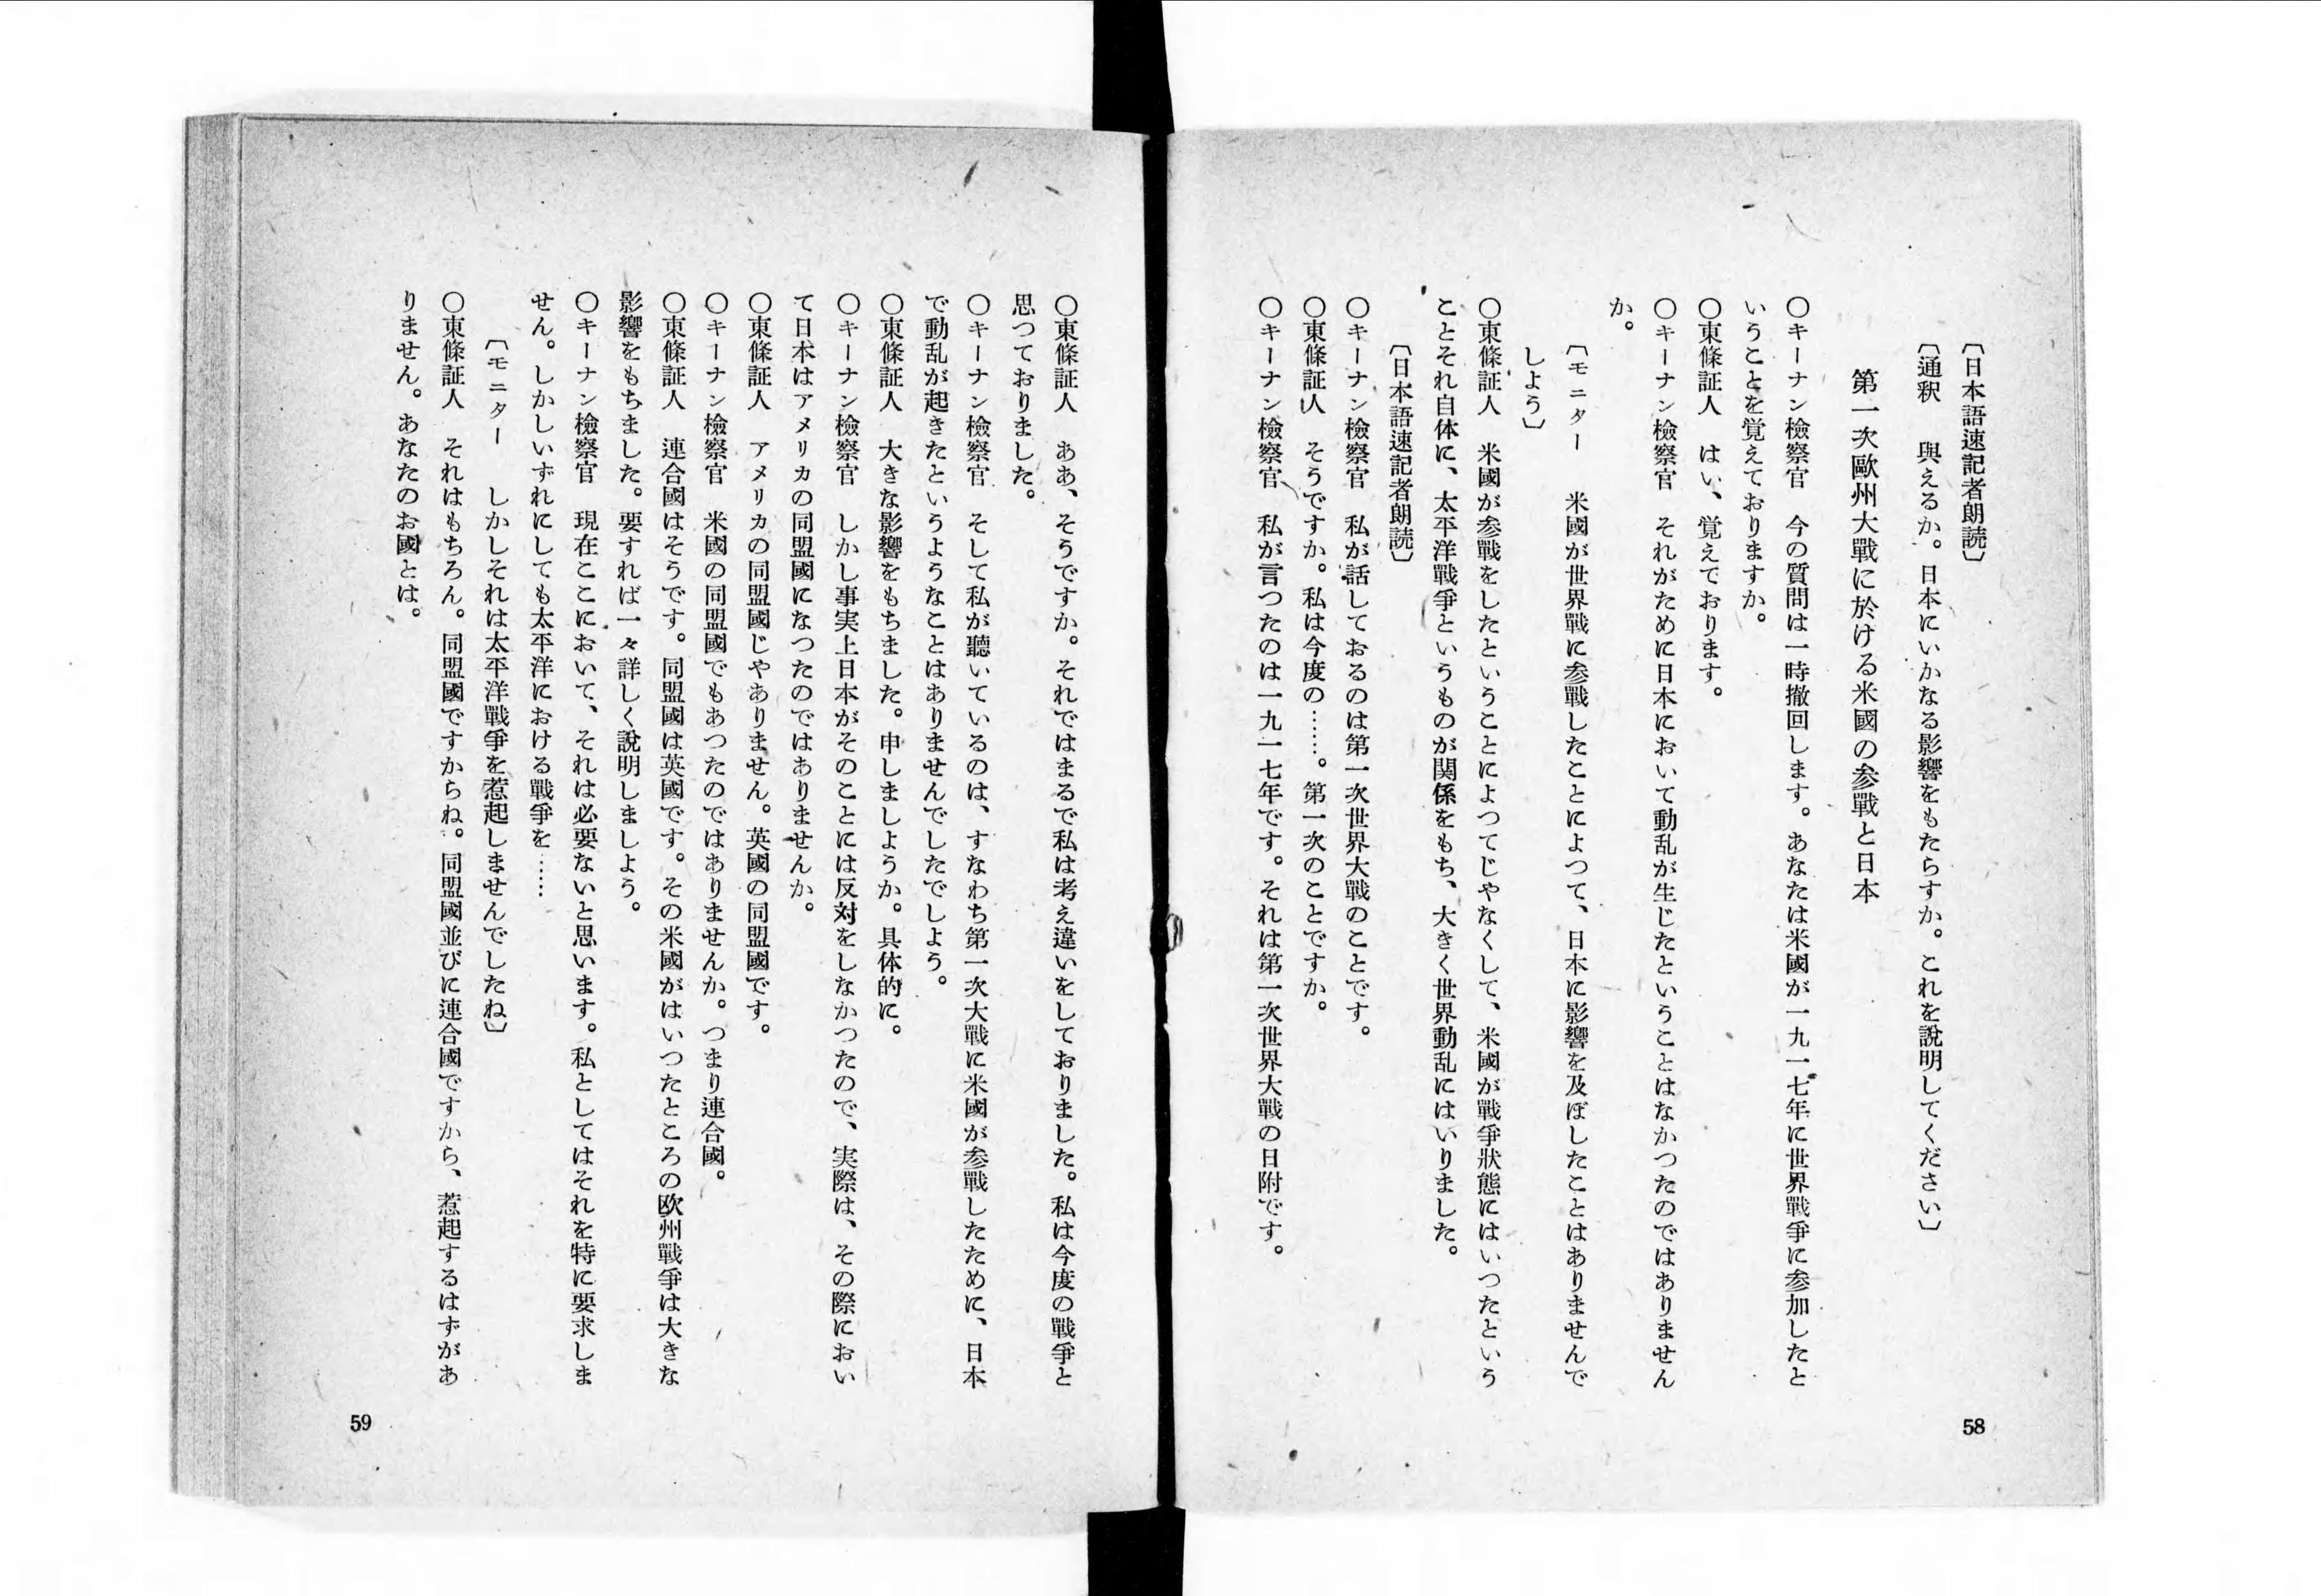 〔日本語速記者朗読〕
〔通釈　與えるか。日本にいかなる影響をもたらすか。これを說明してください〕
第一次歐州大戰に於ける米國の参戰と日本
〇キーナン檢察官　今の質問は一時撤回します。あなたは米國が一九一七年に世界戰爭に参加したと
いうことを覚えておりますか。
〇東條証人　はい、覚えております。
〇キーナン檢察官　それがために日本において動乱が生じたということはなかつたのではありません
か。
〔モニター　米國が世界戰に参戰したことによつて、日本に影響を及ぼしたことはありませんで
しよう〕
〇東條証人　米國が参戰をしたということによつてじやなくして、米國が戰爭狀態にはいつたという
ことそれ自体に、太平洋戰爭というものが関係をもち、大きく世界動乱にはいりました。
〔日本語速記者朗読〕
〇キーナン檢察官　私が話しておるのは第一次世界大戰のことです。
〇東條証人　そうですか。私は今度の……。第一次のことですか。
〇キーナン檢察官　私が言つたのは一九一七年です。それは第一次世界大戰の日附です。
58
〇東條証人　ああ、そうですか。それではまるで私は考え違いをしておりました。私は今度の戰爭と
思つておりました。
〇キーナン檢察官　そして私が聽いているのは、すなわち第一次大戰に米國が参戰したために、日本
で動乱が起きたというようなことはありませんでしたでしよう。
〇東條証人　大きな影響をもちました。申しましようか。具体的に。
〇キーナン檢察官　しかし事実上日本がそのことには反対をしなかつたので、実際は、その際におい
て日本はアメリカの同盟國になつたのではありませんか。
〇東條証人　アメリカの同盟國じやありません。英國の同盟國です。
〇キーナン檢察官　米國の同盟國でもあつたのではありませんか。つまり連合國。
〇東條証人　連合國はそうです。同盟國は英國です。その米國がはいつたところの欧州戰爭は大きな
影響をもちました。要すれば一々詳しく說明しましよう。
〇キーナン檢察官　現在ここにおいて、それは必要ないと思います。私としてはそれを特に要求しま
せん。しかしいずれにしても太平洋における戰爭を……
〔モニター　しかしそれは太平洋戰爭を惹起しませんでしたね〕
〇東條証人　それはもちろん。同盟國ですからね。同盟國並びに連合國ですから、惹起するはずがあ
りません。あなたのお國とは。
59